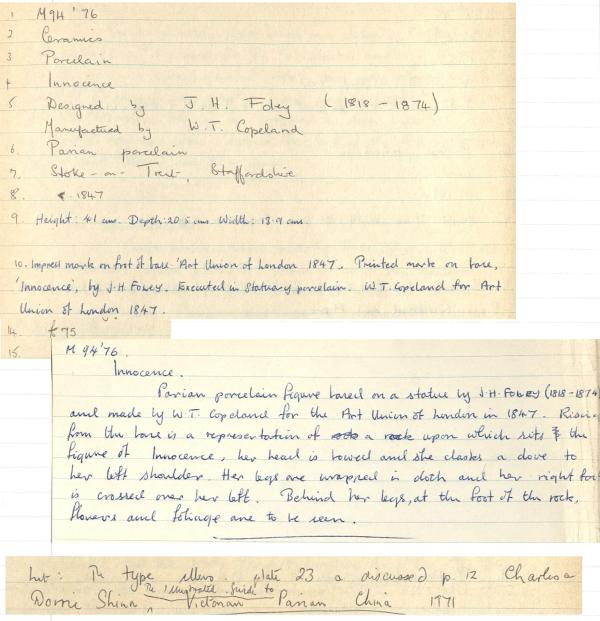 1 M94 '76
2 Ceramics
3 Porcelain
4 Innocence
5 Designed by J. H. Foley (1818 - 1874)
Manufactured by W. T. Copeland
6. Parian porcelain
7. Stoke-on-Trent, Staffordshire
8. 1847
9. Height: 41 cms. Depth: 20.5 cms. Width: 13.9 cms
10. Impress mark on foot of base 'Art Union of London 1847. Printed mark on base,
'Innocence', by J.H. FOLEY. Executed in Statuary porcelain. W.T. Copeland for Art
Union of London 1847.
14. £75
15. M 94'76.
Innocence.
Parian porcelain figure based on a statue by J.H. FOLEY (1818-1874
and made by W.T. Copeland for the Art Union of London in 1847. Rising
from the base is a representation of a rock upon which sits the
figure of Innocence, her head is bowed and she clasks a dove to
her left shoulder. Her legs are wrapped in cloth and her right foot
is crossed over her left. Behind her legs, at the foot of the rock,
flowers and foliage are to be seen.
Lit: The type illus. plate 23 & discussed p. 12 Charles &
Dorrie Shinn The Illustrated Guide to Victorian Parian China 1971